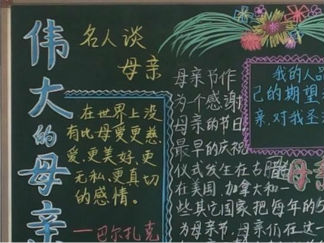 伟大的母亲
名人谈
母亲
在世界上没
有比母爱更慈
爱、更美好、更
无私、更真切
的感情。
——巴尔扎克
母亲节作
为个感谢
母亲的节日
最早的庆祝
仪式发生在古
在美国、加拿大和一
些其它国家把每年的5
为母亲节,母亲们在这一
我的人品
己的期望
亲,对我